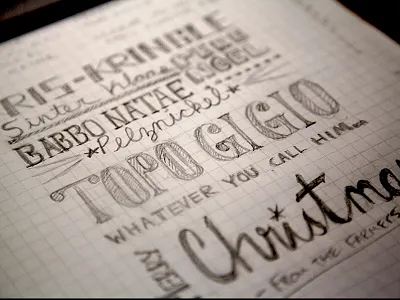 RIS-KRINGLE
Sinter Klaas PERE NOEL
BABBO NATAE
*Pelznickel*
TOPO GIGIO
WHATEVER YOU CALL HIM...
MERRY Christmas
FROM THE FARMERS